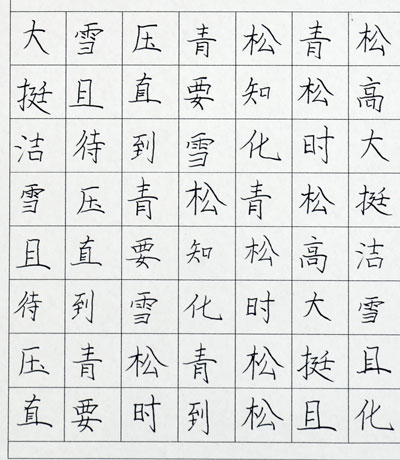 大雪压青松青松
挺且直要知松高
洁待到雪化时大
雪压青松青松挺
且直要知松高洁
待到雪化时大雪
压青松青松挺且
直要时到松且化